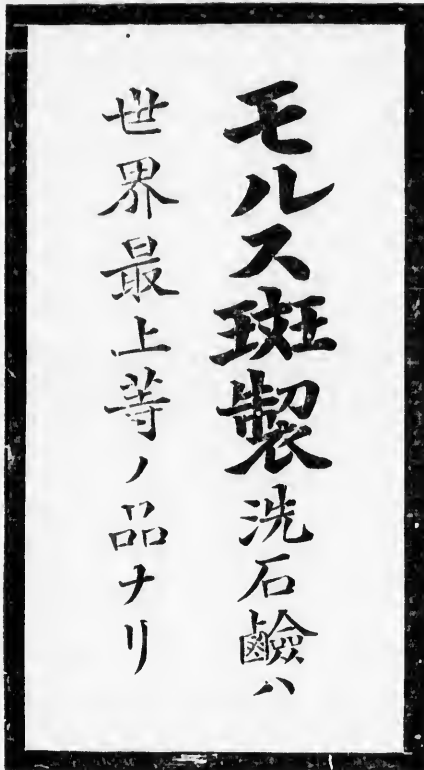 モルス斑製洗石鹼ハ
世界最上等ノ品ナリ